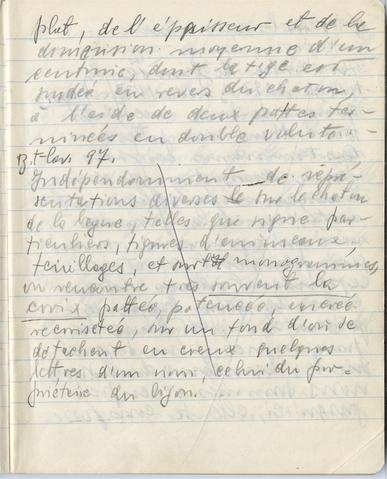 plat, de l'épaisseur et de la
dimension moyenne d'un
centime, dont la tige est
soudée en revers du chaton
à l'aide de deux pattes ter-
minées en double volute. -
B. t. 97.
Indépendamment de repré-
sentations diverses sur le chaton
de la bague, telles que signe par-
ticuliers, figures d'animeaux,
feuillages, et monogrammes,
on rencontre très souvent la
croix pattée, potencée, ancrée
recroisetée, sur un fond d'or se
détachent en creux quelques
lettres d'un nom, celui du pro-
priétaire du bijou.